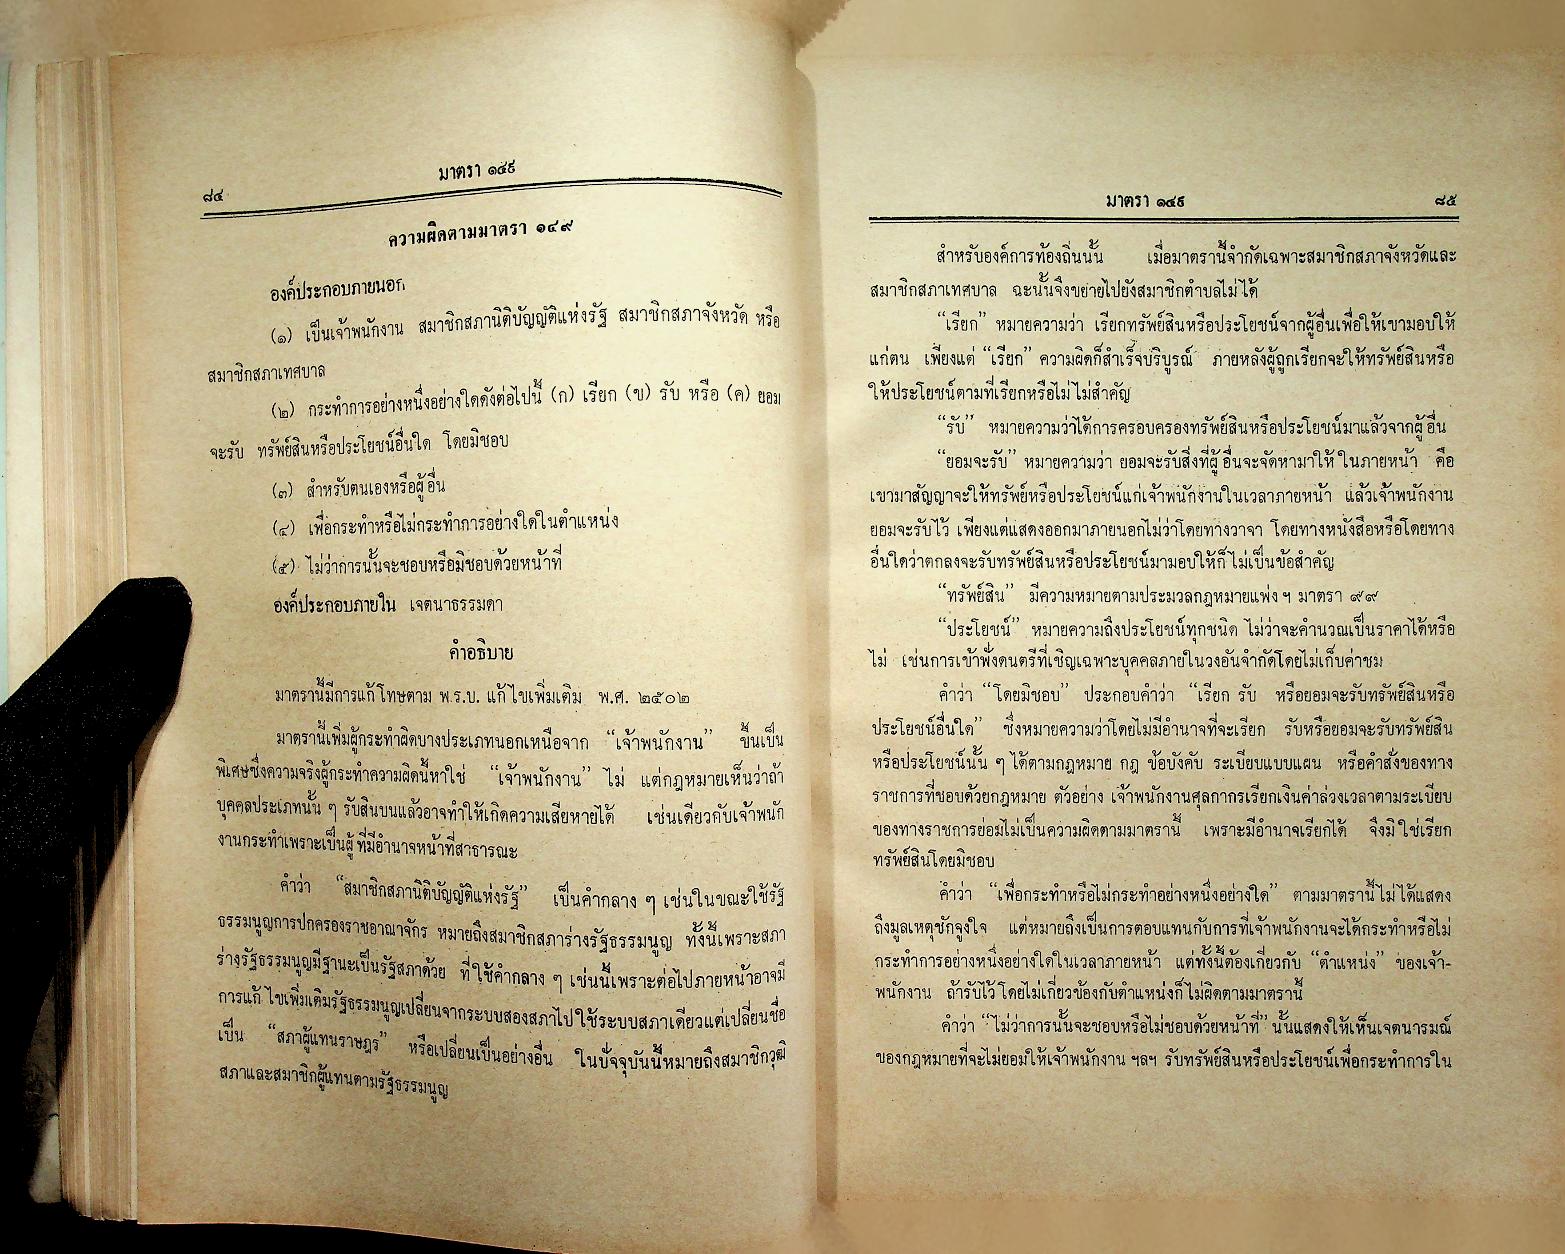 ๘๔
มาตรา ๑๔๙
ความผิดตามมาตรา ๑๔๙
องค์ประกอบภายนอก
(๑) เป็นเจ้าพนักงาน สมาชิกสภานิติบัญญัติแห่งรัฐ สมาชิกสภาจังหวัด หรือ
สมาชิกสภาเทศบาล
(๒) กระทำการอย่างหนึ่งอย่างใดดังต่อไปนี้ (ก) เรียก (ข) รับ หรือ (ค) ยอม
จะรับ ทรัพย์สินหรือประโยชน์อื่นใด โดยมิชอบ
(๓) สำหรับตนเองหรือผู้อื่น
(๔) เพื่อกระทำหรือไม่กระทำการอย่างใดในตำแหน่ง
(๕) ไม่ว่าการนั้นจะชอบหรือมิชอบด้วยหน้าที่
องค์ประกอบภายใน เจตนาธรรมดา
คำอธิบาย
มาตรานี้มีการแก้โทษตาม พ.ร.บ. แก้ไขเพิ่มเติม พ.ศ. ๒๕๐๒
มาตรานี้เพิ่มผู้กระทำผิดบางประเภทนอกเหนือจาก “เจ้าพนักงาน” ขึ้นเป็น
พิเศษซึ่งความจริงผู้กระทำความผิดนี้หาใช่ “เจ้าพนักงาน” ไม่ แต่กฎหมายเห็นว่าถ้า
บุคคลประเภทนั้น ๆ รับสินบนแล้วอาจทำให้เกิดความเสียหายได้ เช่นเดียวกับเจ้าพนัก
งานกระทำเพราะเป็นผู้ที่มีอำนาจหน้าที่สาธารณะ
คำว่า “สมาชิกสภานิติบัญญัติแห่งรัฐ” เป็นคำกลาง ๆ เช่นในขณะใช้รัฐ
ธรรมนูญการปกครองราชอาณาจักร หมายถึงสมาชิกสภาร่างรัฐธรรมนูญ ทั้งนี้เพราะสภา
ร่างรัฐธรรมนูญมีฐานะเป็นรัฐสภาด้วย ที่ใช้คำกลาง ๆ เช่นนี้เพราะต่อไปภายหน้าอาจมี
การแก้ไขเพิ่มเติมรัฐธรรมนูญเปลี่ยนจากระบบสองสภาไปใช้ระบบสภาเดียวแต่เปลี่ยนชื่อ
เป็น “สภาผู้แทนราษฎร” หรือเปลี่ยนเป็นอย่างอื่น ในปัจจุบันนี้หมายถึงสมาชิกวุฒิ
สภาและสมาชิกผู้แทนตามรัฐธรรมนูญ
มาตรา ๑๔๙
๘๕
สำหรับองค์การท้องถิ่นนั้น เมื่อมาตรานี้จำกัดเฉพาะสมาชิกสภาจังหวัดและ
สมาชิกสภาเทศบาล ฉะนั้นจึงขยายไปยังสมาชิกตำบลไม่ได้
“เรียก” หมายความว่า เรียกทรัพย์สินหรือประโยชน์จากผู้อื่นเพื่อให้เขามอบให้
แก่ตน เพียงแต่ “เรียก” ความผิดก็สำเร็จบริบูรณ์ ภายหลังผู้ถูกเรียกจะให้ทรัพย์สินหรือ
ให้ประโยชน์ตามที่เรียกหรือไม่ไม่สำคัญ
“รับ” หมายความว่าได้การครอบครองทรัพย์สินหรือประโยชน์มาแล้วจากผู้อื่น
“ยอมจะรับ” หมายความว่า ยอมจะรับสิ่งที่ผู้อื่นจะจัดหามาให้ในภายหน้า คือ
เขามาสัญญาจะให้ทรัพย์หรือประโยชน์แก่เจ้าพนักงานในเวลาภายหน้า แล้วเจ้าพนักงาน
ยอมจะรับไว้ เพียงแต่แสดงออกมาภายนอกไม่ว่าโดยทางวาจา โดยทางหนังสือหรือโดยทาง
อื่นใดว่าตกลงจะรับทรัพย์สินหรือประโยชน์มามอบให้ก็ไม่เป็นข้อสำคัญ
“ทรัพย์สิน” มีความหมายตามประมวลกฎหมายแพ่ง ฯ มาตรา ๙๙
“ประโยชน์” หมายความถึงประโยชน์ทุกชนิด ไม่ว่าจะคำนวณเป็นราคาได้หรือ
ไม่ เช่นการเข้าฟังดนตรีที่เชิญเฉพาะบุคคลภายในวงอันจำกัดโดยไม่เก็บค่าชม
คำว่า “โดยมิชอบ” ประกอบคำว่า “เรียก รับ หรือยอมจะรับทรัพย์สินหรือ
ประโยชน์อื่นใด” ซึ่งหมายความว่าโดยไม่มีอำนาจที่จะเรียก รับหรือยอมจะรับทรัพย์สิน
หรือประโยชน์นั้น ๆ ได้ตามกฎหมาย กฎ ข้อบังคับ ระเบียบแบบแผน หรือคำสั่งของทาง
ราชการที่ชอบด้วยกฎหมาย ตัวอย่าง เจ้าพนักงานศุลกากรเรียกเงินค่าล่วงเวลาตามระเบียบ
ของทางราชการย่อมไม่เป็นความผิดตามมาตรานี้ เพราะมีอำนาจเรียกได้ จึงมิใช่เรียก
ทรัพย์สินโดยมิชอบ
คำว่า “เพื่อกระทำหรือไม่กระทำอย่างหนึ่งอย่างใด” ตามมาตรานี้ไม่ได้แสดง
ถึงมูลเหตุชักจูงใจ แต่หมายถึงเป็นการตอบแทนกับการที่เจ้าพนักงานจะได้กระทำหรือไม่
กระทำการอย่างหนึ่งอย่างใดในเวลาภายหน้า แต่ทั้งนี้ต้องเกี่ยวกับ “ตำแหน่ง” ของเจ้า-
พนักงาน ถ้ารับไว้โดยไม่เกี่ยวข้องกับตำแหน่งก็ไม่ผิดตามมาตรานี้
คำว่า “ไม่ว่าการนั้นจะชอบหรือไม่ชอบด้วยหน้าที่” นั้นแสดงให้เห็นเจตนารมณ์
ของกฎหมายที่จะไม่ยอมให้เจ้าพนักงาน ฯลฯ รับทรัพย์สินหรือประโยชน์เพื่อกระทำการใน